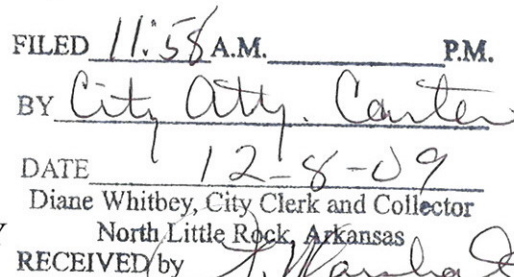 FILED 11:58 A.M. P.M.
BY City Atty. Carter
DATE 12-8-09
Diane Whitbey, City Clerk and Collector
North Little Rock, Arkansas
RECEIVED by